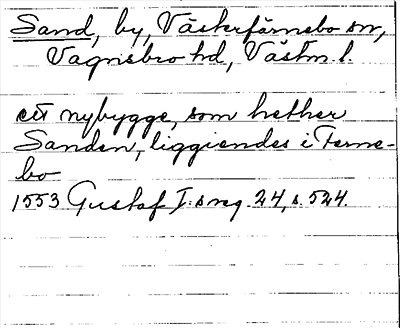 Sand, by, Västerfärnebo sn,
Vagnsbro hd, Västm. l.
ett nybygge, som hether
Sanden, liggiendes i Ferne-
bo
1553 Gustaf I:s reg. 24, s. 524.